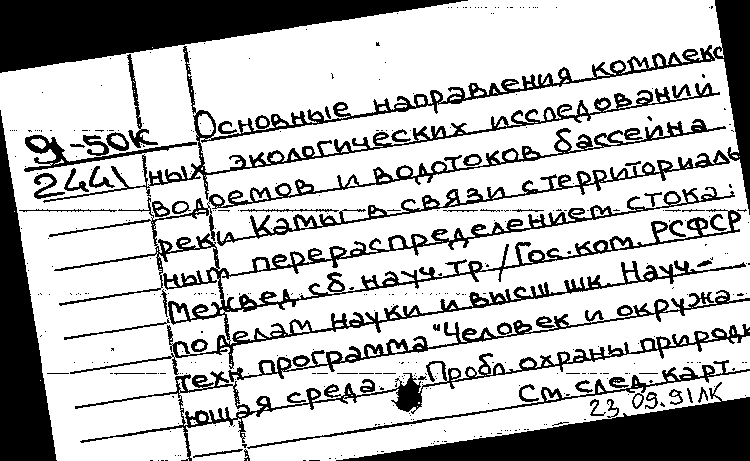 Основные направления комплекс
Я-50к
2441
ных экологических исследований
водоемов и водотоков бассейна
реки Камы в связи с территориаль
ным перераспределением стока:
Межвед. сб. науч. тр. / Гос. ком. РСФСР
по делам науки и высш шк. Науч.-
техн программа "Человек и окружа-
ющая среда. Пробл. охраны природы
См. след. карт.
23.09.91 ЛК